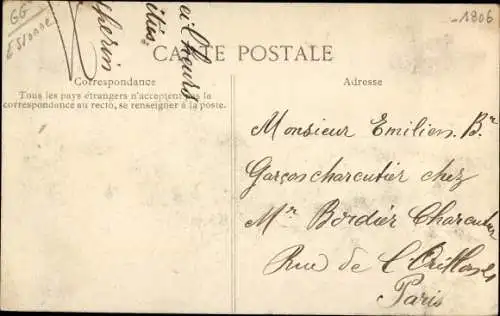 GG
Essonne
1806
CARTE POSTALE
Correspondance
Tous les pays étrangers n'acceptent pas la
correspondance au recto, se renseigner à la poste.
Adresse
Monsieur Emilien. B.
Garçon charcutier chez
Mr Bordier Charcutier
Rue de l'Orillon
Paris